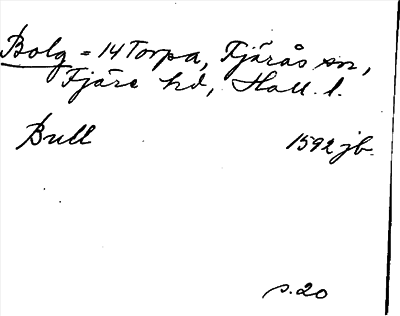 Bolg = 14 Torpa, Fjärås sn,
Fjäre hd, Hall. l.
Bull 1592 jb.
s. 20